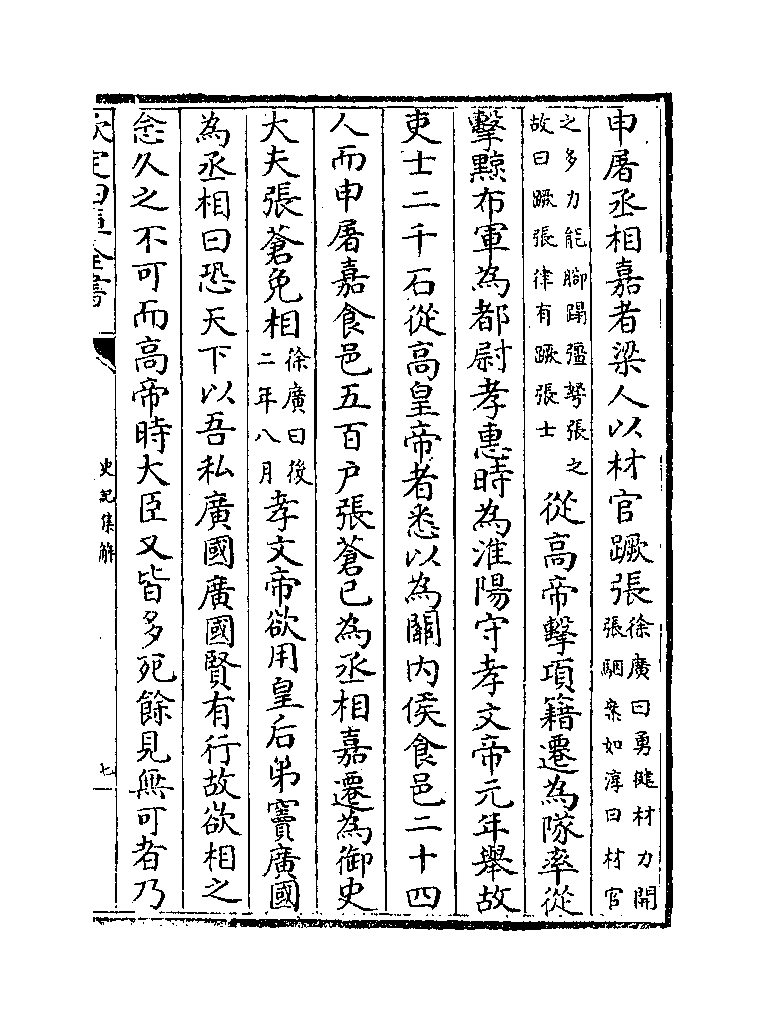 申屠丞相嘉者梁人以材官蹶張徐廣曰勇健材力開張駰案如淳曰材官
之多力能腳蹋彊弩張之故曰蹶張律有蹶張士從高帝擊項籍遷為隊率從
擊黥布軍為都尉孝惠時為淮陽守孝文帝元年舉故
吏士二千石從高皇帝者悉以為關内侯食邑二十四
人而申屠嘉食邑五百户張蒼已為丞相嘉遷為御史
大夫張蒼免相徐廣曰後二年八月孝文帝欲用皇后弟竇廣國
為丞相曰恐天下以吾私廣國廣國賢有行故欲相之
念久之不可而高帝時大臣又皆多死餘見無可者乃
欽定四庫全書
史記集解
七